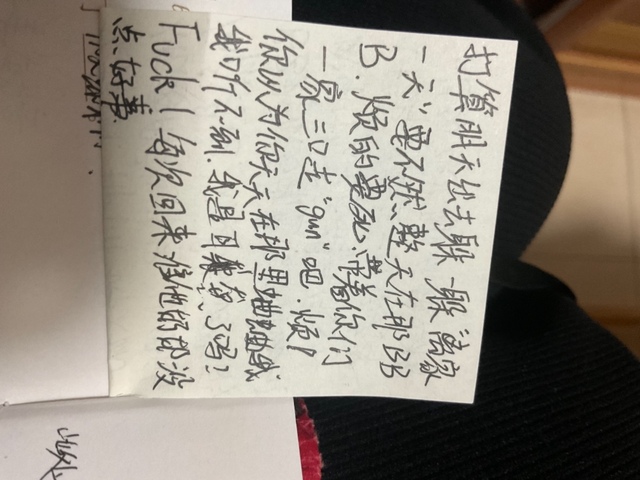 打算明天出去躲一躲离家
一天"要不然、整天在那BB
B.烦的要死、带着你们
一家三口走"gun"吧.烦!
你以为你天天在那里蛐蛐我
我听不到.我是耳聋了吗?
Fuck!每次回来准他妈的没
点好事.